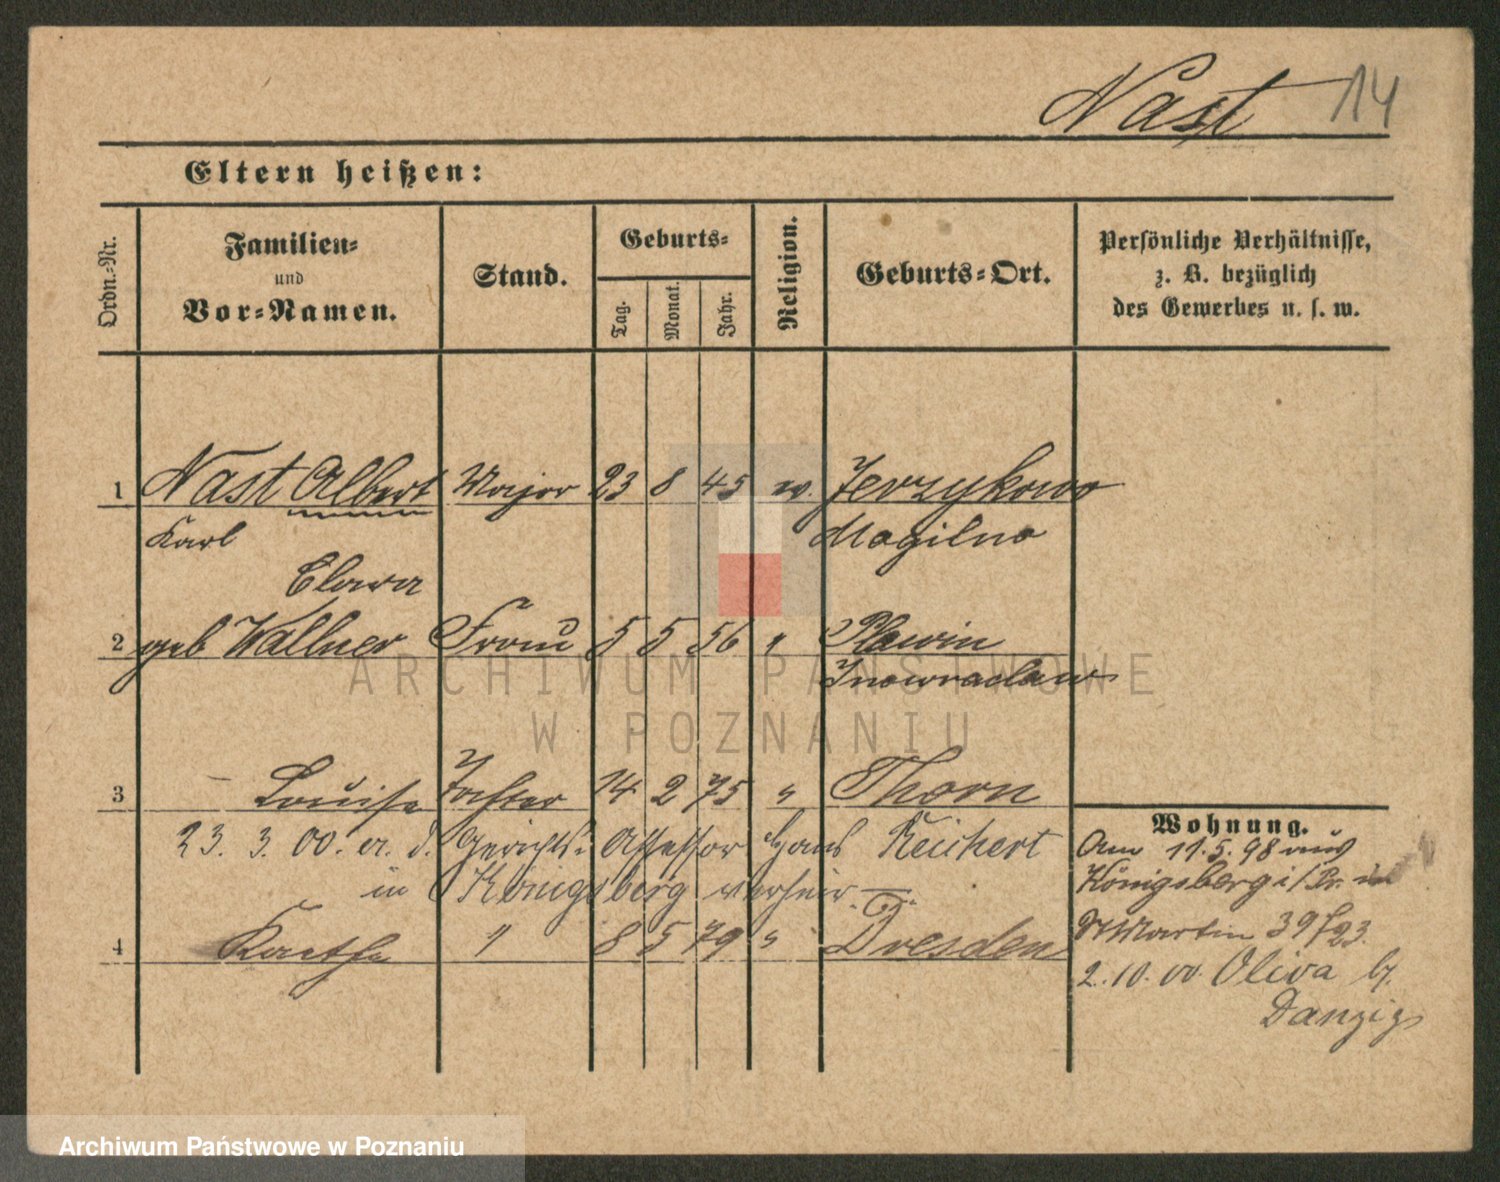 Nast 14
Eltern heißen:
Ordn.-Nr.
Familien-
und
Vor-Namen.
Stand.
Geburts-
Tag.
Monat.
Jahr.
Religion.
Geburts-Ort.
Persönliche Verhältnisse,
z. B. bezüglich
des Gewerbes u. s. w.
1 Nast Albert Major 23 8 45 ev. Jerzykowo
Karl Mogilno
Clara
2 geb Wallner Frau 5 5 56 " Plawin
Inowraclaw
3 – Louise Tochter 14 2 75 " Thorn
23. 3. 00. a. d. Gerichts- Assessor Hans Reichert
in Königsberg verheir.
4 Kaethe " 8 5 79 " Dresden
Wohnung.
Am 11.5.98 aus
Königsberg i/Pr.
St Martin 39
2.10.00 Oliva b/.
Danzig
ARCHIWUM PAŃSTWOWE
W POZNANIU
Archiwum Państwowe w Poznaniu